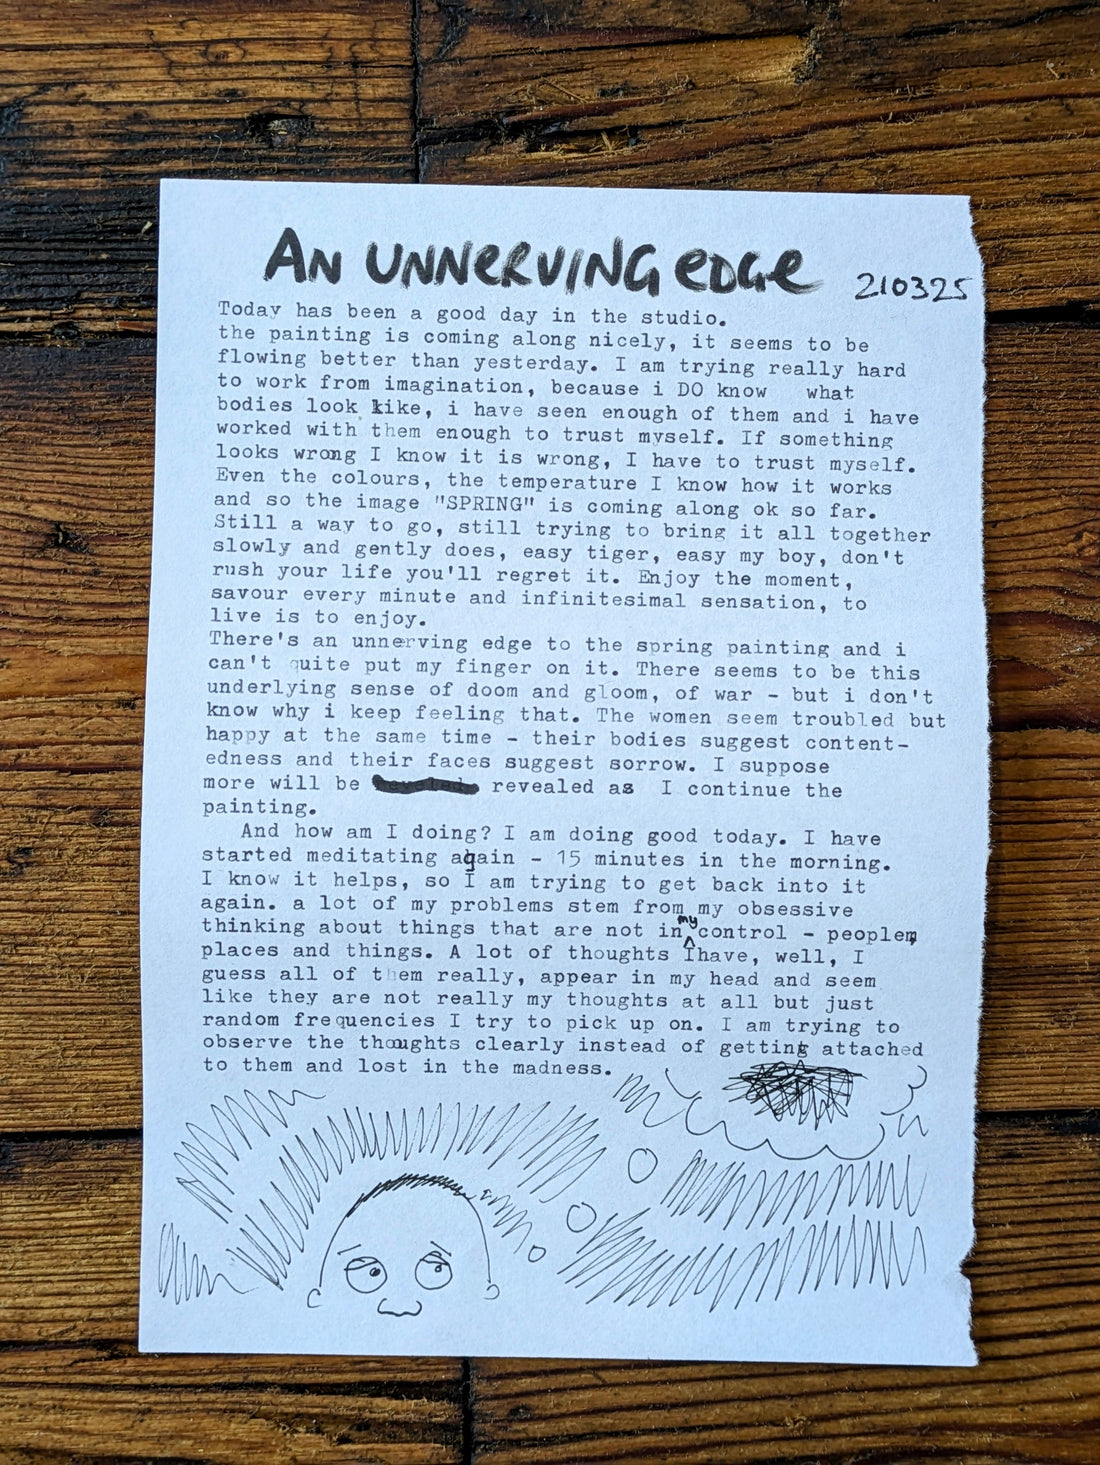 AN UNNERVING EDGE
210325
Today has been a good day in the studio.
the painting is coming along nicely, it seems to be
flowing better than yesterday. I am trying really hard
to work from imagination, because i DO know what
bodies look like, i have seen enough of them and i have
worked with them enough to trust myself. If something
looks wrong I know it is wrong, I have to trust myself.
Even the colours, the temperature I know how it works
and so the image "SPRING" is coming along ok so far.
Still a way to go, still trying to bring it all together
slowly and gently does, easy tiger, easy my boy, don't
rush your life you'll regret it. Enjoy the moment,
savour every minute and infinitesimal sensation, to
live is to enjoy.
There's an unnerving edge to the spring painting and i
can't quite put my finger on it. There seems to be this
underlying sense of doom and gloom, of war - but i don't
know why i keep feeling that. The women seem troubled but
happy at the same time - their bodies suggest content-
edness and their faces suggest sorrow. I suppose
more will be revealed as I continue the
painting.
And how am I doing? I am doing good today. I have
started meditating again - 15 minutes in the morning.
I know it helps, so I am trying to get back into it
again. a lot of my problems stem from my obsessive
thinking about things that are not in my control - people,
places and things. A lot of thoughts I have, well, I
guess all of them really, appear in my head and seem
like they are not really my thoughts at all but just
random frequencies I try to pick up on. I am trying to
observe the thoughts clearly instead of getting attached
to them and lost in the madness.